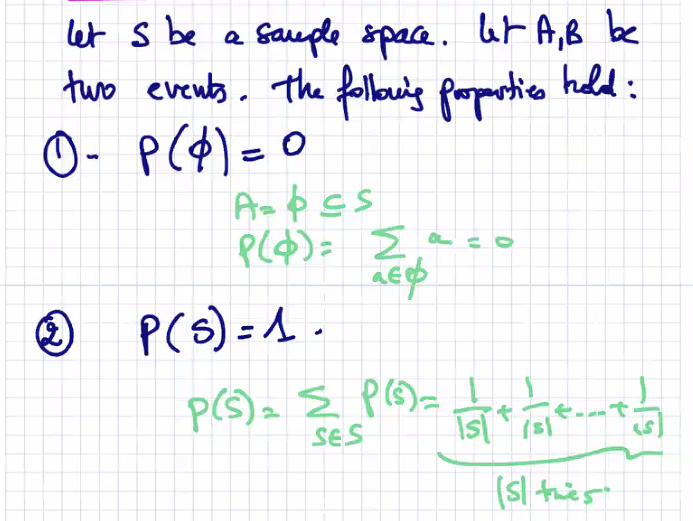 let S be a sample space. let A,B be
two events. The following properties hold:
①- P(ϕ) = 0
A = ϕ ⊆ S
P(ϕ) = ∑ a = 0
a∈ϕ
② P(S) = 1.
P(S) = ∑ P(s) = 1/|S| + 1/|S| + .... + 1/|S|
s∈S
|S| times.